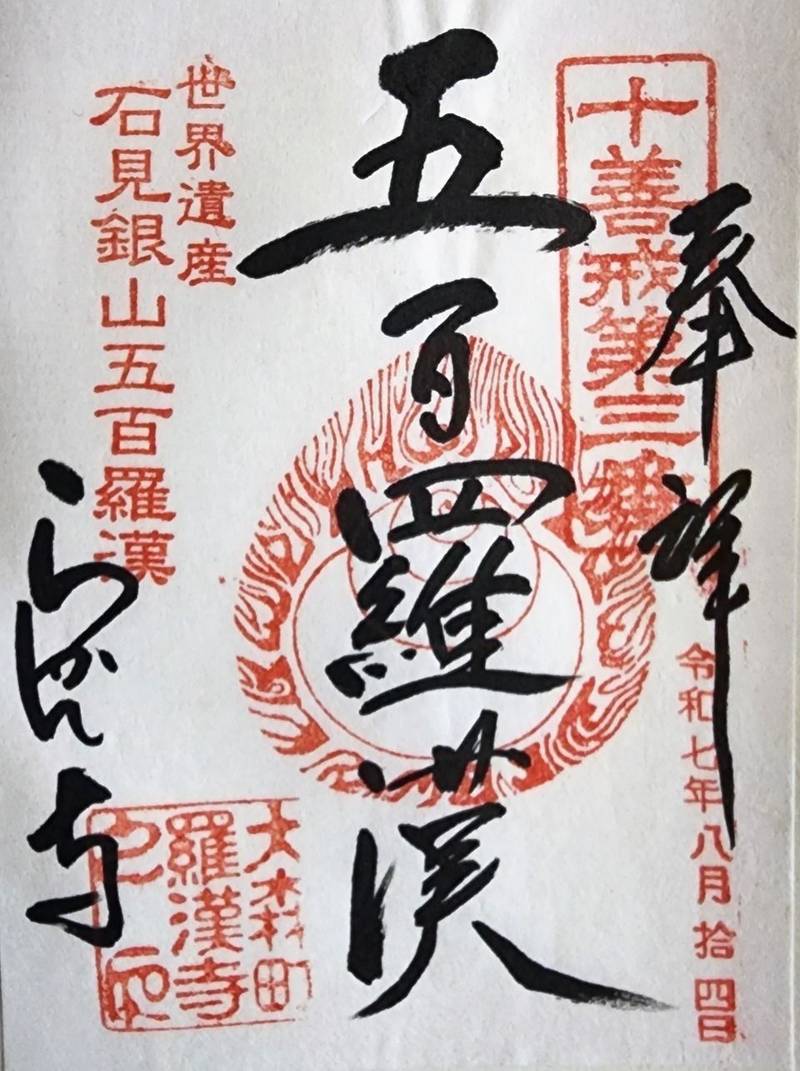 奉拝
十善戒第三
令和七年八月拾四日
五百羅漢
世界遺産
石見銀山五百羅漢
らかん寺
大森町
羅漢寺
之印